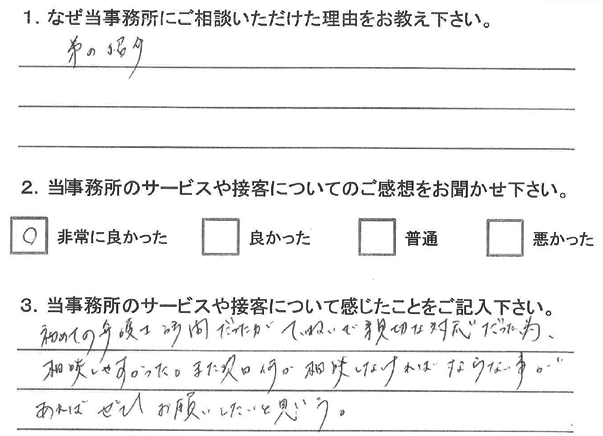 1. なぜ当事務所にご相談いただけた理由をお教え下さい。
弟の紹介
2. 当事務所のサービスや接客についてのご感想をお聞かせ下さい。
○ 非常に良かった 良かった 普通 悪かった
3. 当事務所のサービスや接客について感じたことをご記入下さい。
初めての弁護士訪問だったがていねいで親切な対応だった為、
相談しやすかった。また次回何か相談しなければならない事が
あればぜひお願いしたいと思う。